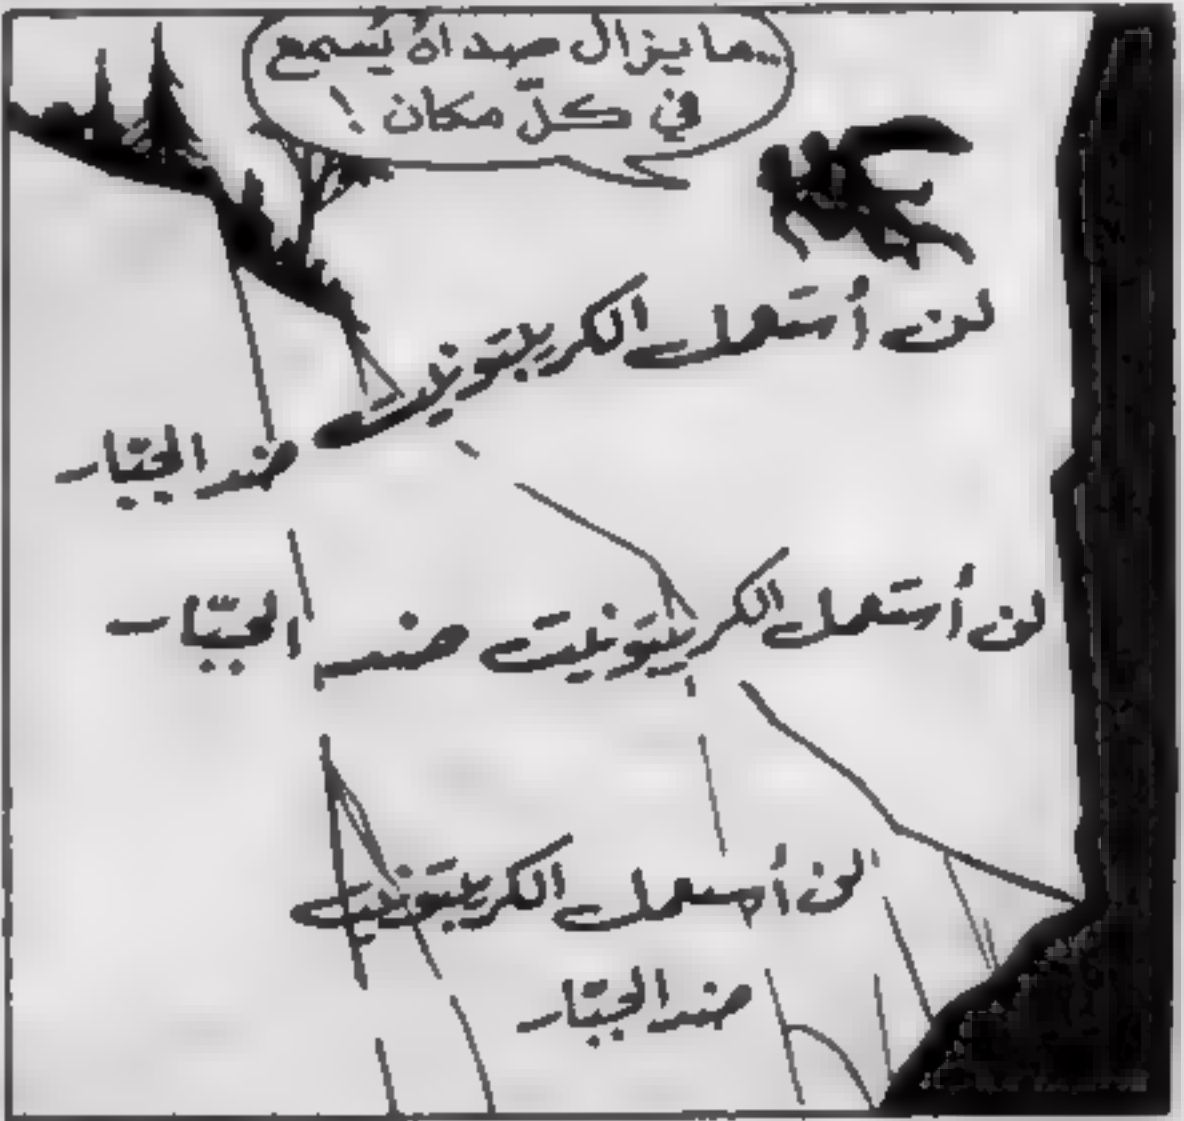 ...ما يزال صداهُ يُسمع
في كلّ مكان !
لن أستعمل الكريبتونيت ضد الجبّار
لن أستعمل الكريبتونيت ضد الجبّار
لن أستعمل الكريبتونيت
ضد الجبّار